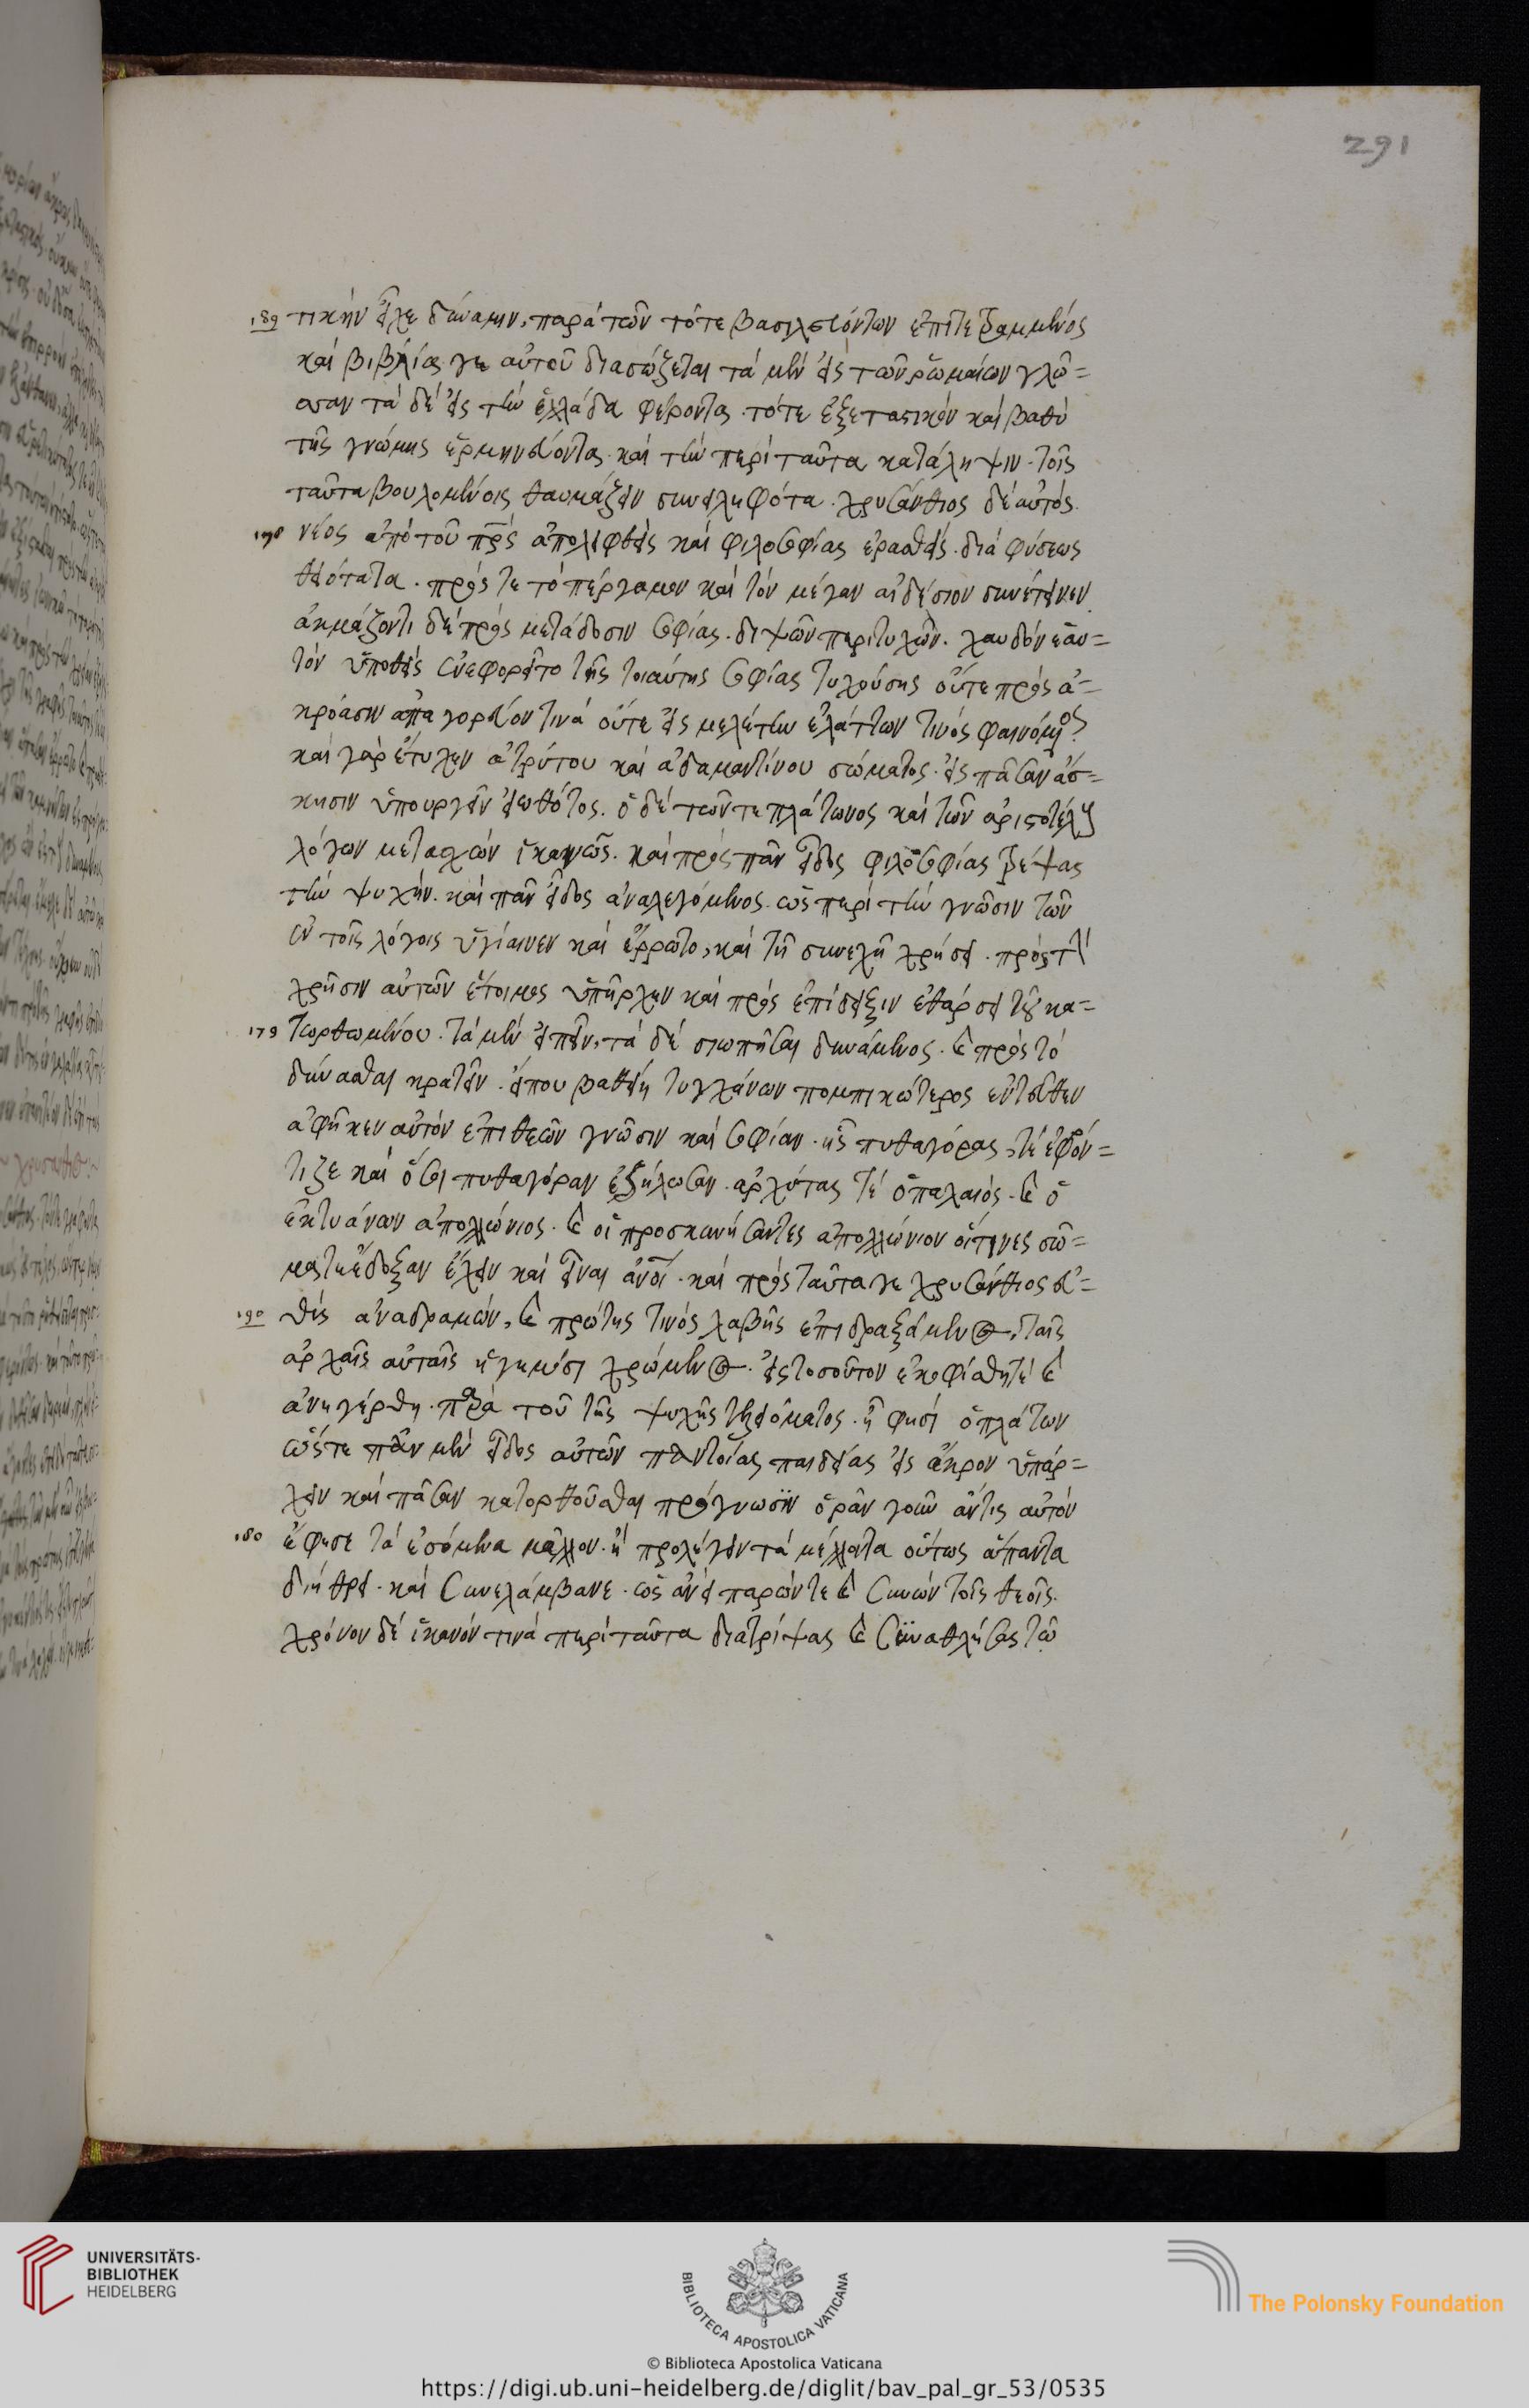 291
189 τικὴν εἶχε δύναμιν, παρὰ τῶν τότε βασιλευόντων ἐπιτετραμμένος
καὶ βιβλία γε αὐτοῦ διασώζεται τὰ μὲν εἰς τῶν ῥωμαίων γλῶ=
σσαν τὰ δὲ εἰς τὴν ἑλλάδα φέροντα. τό τε ἐξεταστικὸν καὶ βαθὺ
τῆς γνώμης ἑρμηνεύοντα. καὶ τὴν περὶ ταῦτα κατάληψιν. τοῖς
ταῦτα βουλομένοις θαυμάζειν συνειληφότα. χρυσάνθιος δὲ αὐτὸς
νέος ἀπὸ τοῦ πρς ἀπολειφθεὶς καὶ φιλοσοφίας ἐρασθεὶς. διὰ φύσεως
θειότητα. πρός τε τὸ πέργαμον καὶ τὸν μέγαν αἰδέσιον συνέτεινεν
ἀκμάζοντι δὲ πρὸς μετάδοσιν σοφίας. διψῶν περιτυχὼν. χανδὸν ἑαυ=
τὸν ὑποθεὶς ἐνεφορεῖτο τῆς τοιαύτης σοφίας τυχούσης οὔτε πρὸς ἀ=
κρόασιν ἀπαγορεύον τινὰ οὔτε εἰς μελέτην ἐλάττων τινὸς φαινόμενος
καὶ γὰρ ἔτυχεν ἀτρύτου καὶ ἀδαμαντίνου σώματος. εἰς πᾶσαν ἄσ=
κησιν ὑπουργεῖν εἰωθότος. ὁ δὲ τῶν τε πλάτωνος καὶ τῶν ἀριστοτέλους
λόγων μετασχὼν ἱκανῶς. καὶ πρὸς πᾶν εἶδος φιλοσοφίας τρέψας
τὴν ψυχὴν. καὶ πᾶν εἶδος ἀναλεγόμενος. ὡς περὶ τὴν γνῶσιν τῶν
ἐν τοῖς λόγοις ὑγίαινεν καὶ ἔρρωτο, καὶ τῇ συνεχῇ χρήσει. πρὸς τὴν
χρῆσιν αὐτῶν ἕτοιμος ὑπῆρχεν καὶ πρὸς ἐπίδειξιν ἐθάρσει τοῦ κα=
179 τωρθωμένου. τὰ μὲν εἰπεῖν, τὰ δὲ σιωπῆσαι δυνάμενος. καὶ πρὸς τὸ
δύνασθαι κρατεῖν. εἴπου βιασθείη τυγχάνων πομπικώτερος ἐντεῦθεν
ἀφῆκεν αὐτὸν ἐπὶ θεῶν γνῶσιν καὶ σοφίαν. ἧς πυθαγόρας, τὲ ἐφρόν=
τιζε καὶ ὅσοι πυθαγόραν ἐζήλωσαν. ἀρχύτας τὲ ὁ παλαιός. καὶ ὁ
ἐκ τυάνων ἀπολλώνιος. καὶ οἱ προσκυνήσαντες ἀπολλώνιον οἵτινες σῶ=
μα τι ἔδοξαν ἔχειν καὶ εἶναι ἀνοι. καὶ πρὸς ταῦτα γε χρυσάνθιος εὐ=
190 θὺς ἀναδραμὼν, καὶ πρώτης τινὸς λαβῆς ἐπιδραξάμενος, ταῖς
ἀρχαῖς αὐταῖς ἡγεμόσι χρώμενος. εἰς τοσοῦτον ἐκουφίσθη τὲ καὶ
ἀνηγέρθη. παρὰ τοῦ τῆς ψυχῆς πτερώματος. ᾗ φησὶ ὁ πλάτων
ὥστε πᾶν μὲν εἶδος αὐτῶν παντοίας παιδείας εἰς ἄκρον ὑπάρ=
χειν καὶ πᾶσαν κατορθοῦσθαι πρόγνωσιν ὁρᾶν γοῦν ἄν τις αὐτὸν
180 ἔφησε τὰ ἐσόμενα μᾶλλον. ἢ προλέγειν τὰ μέλλοντα οὕτως ἅπαντα
διήθρει. καὶ συνελάμβανε. ὡς ἀνεὶ παρών τε καὶ συνὼν τοῖς θεοῖς.
χρόνον δὲ ἱκανόν τινα περὶ ταῦτα διατρίψας καὶ συναθλήσας τῷ
UNIVERSITÄTS-
BIBLIOTHEK
HEIDELBERG
BIBLIOTECA APOSTOLICA VATICANA
© Biblioteca Apostolica Vaticana
The Polonsky Foundation
https://digi.ub.uni-heidelberg.de/diglit/bav_pal_gr_53/0535